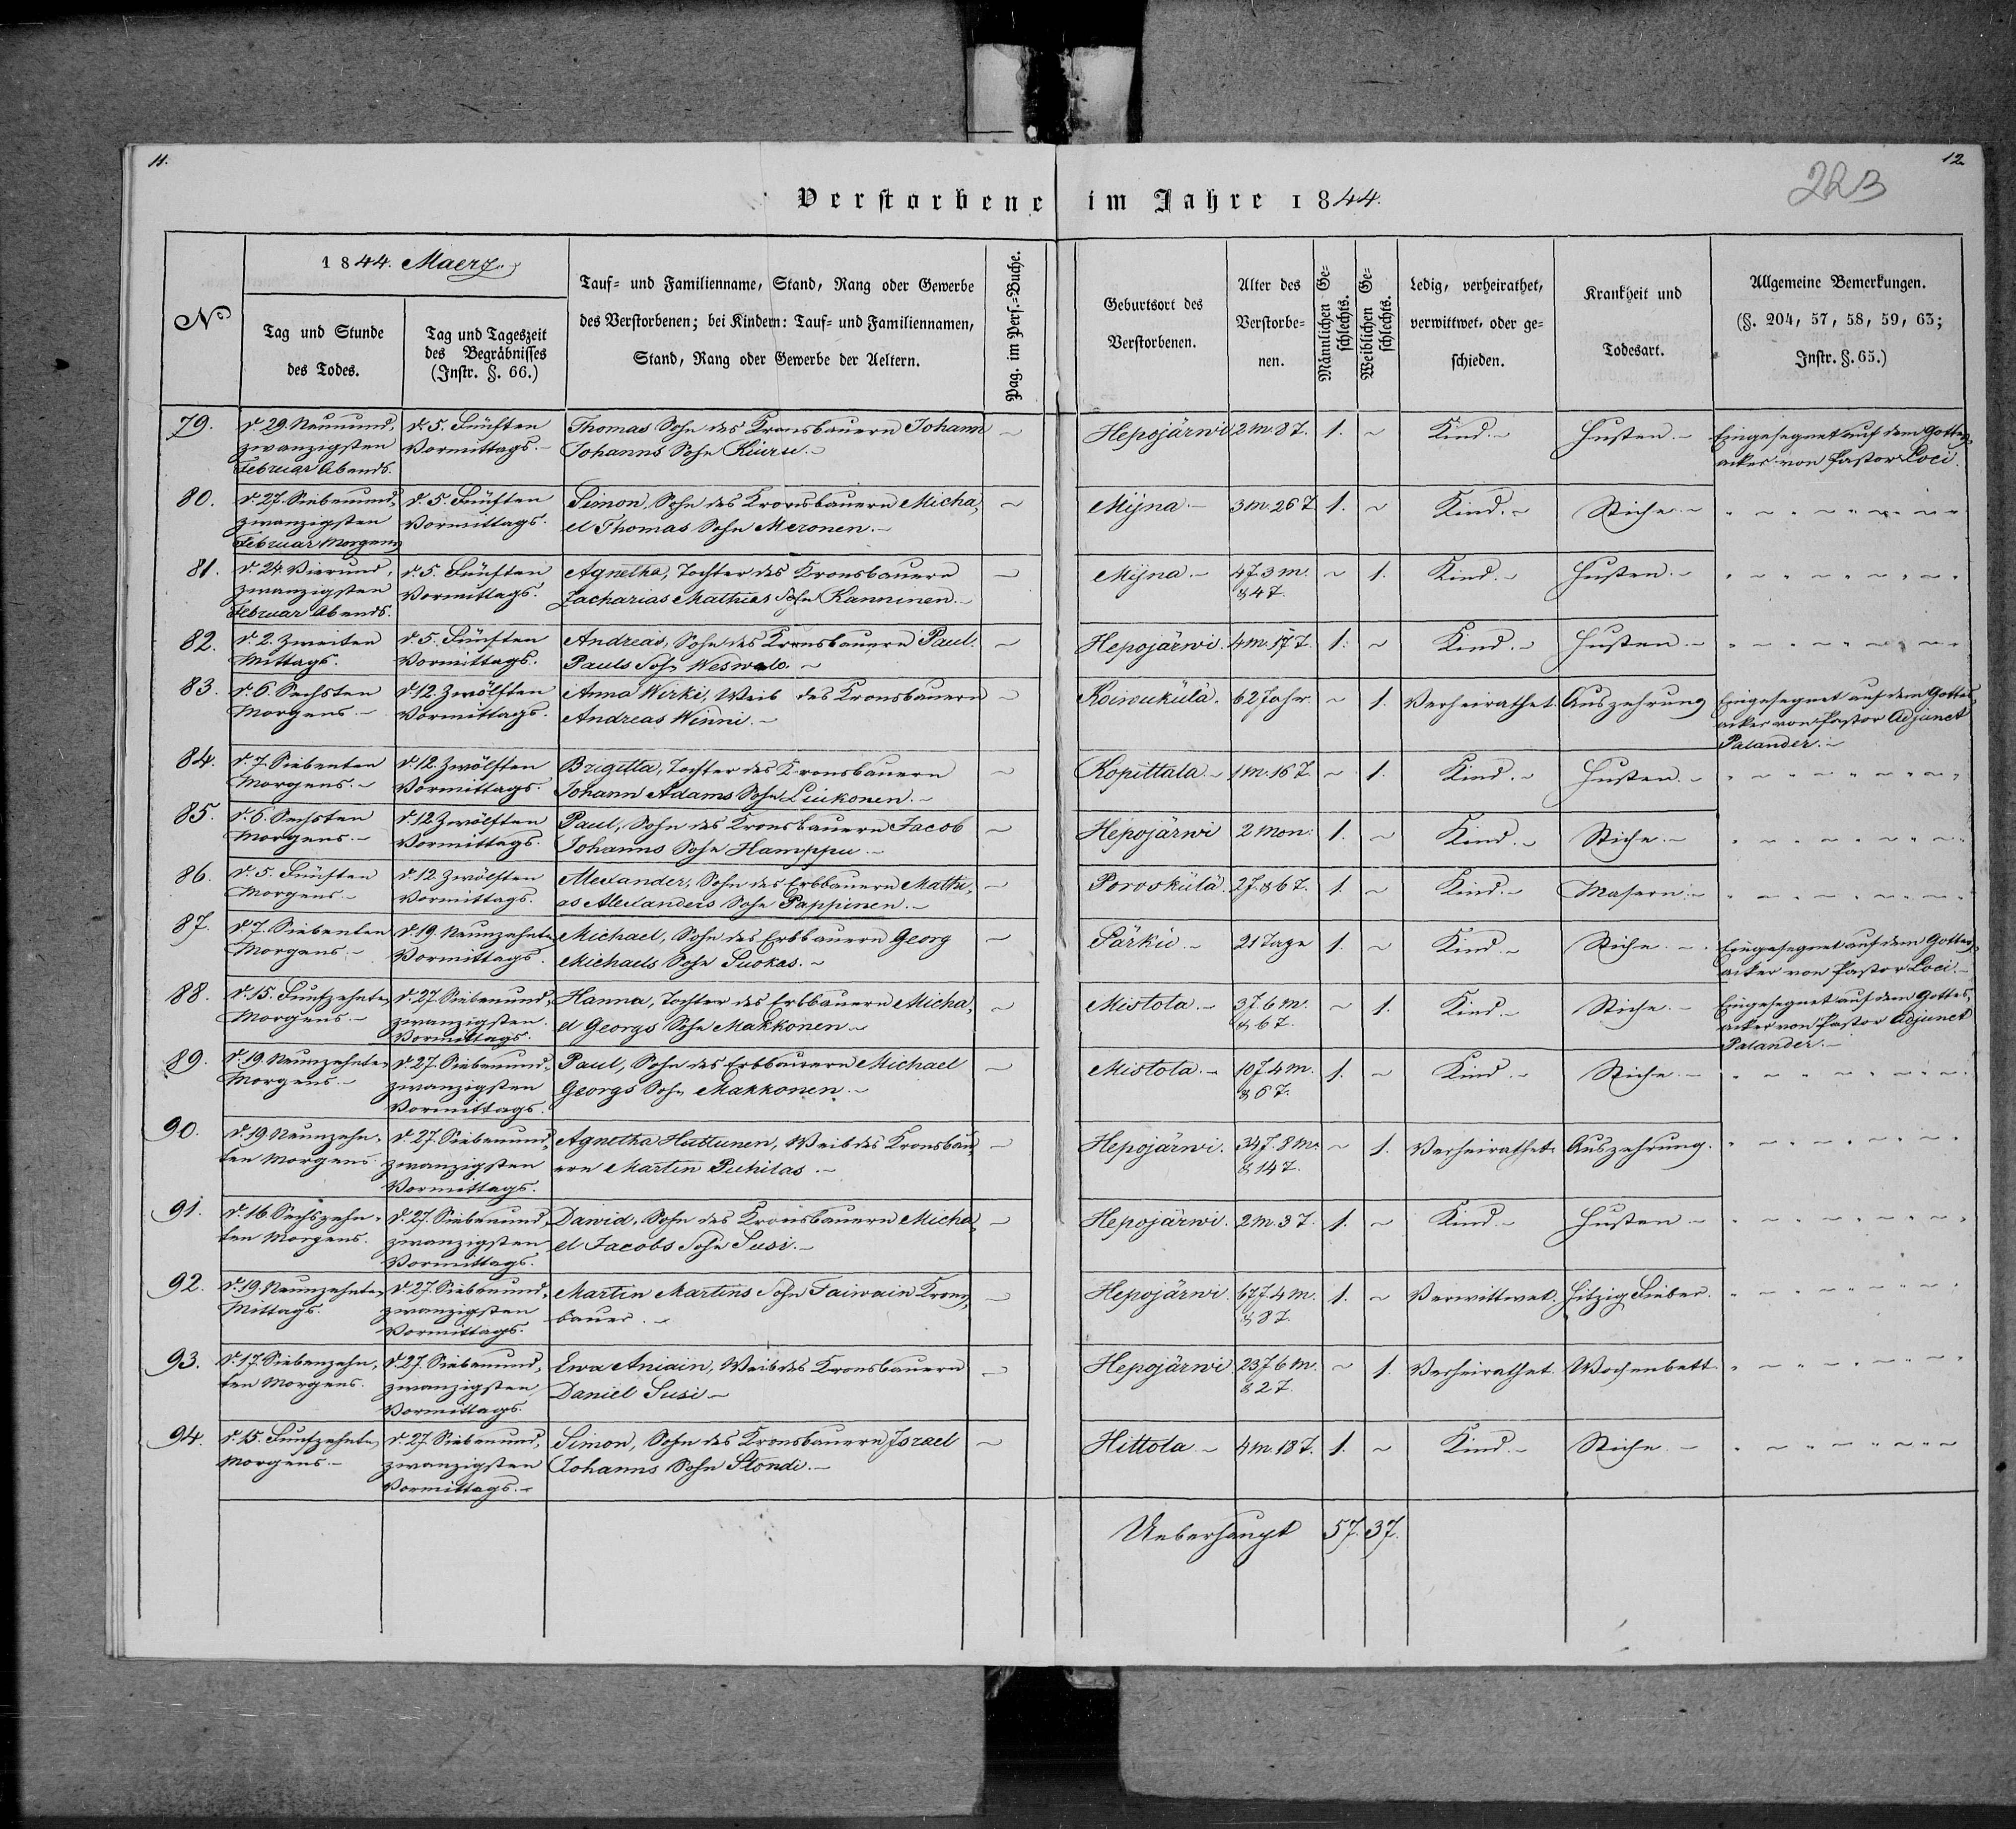 11.
12.
223
Verstorbene im Jahre 1844.
No
1844. Maerz.
Tag und Stunde
des Todes.
Tag und Tageszeit
des Begräbnisses
(Instr. §. 66.)
Tauf- und Familienname, Stand, Rang oder Gewerbe
des Verstorbenen; bei Kindern: Tauf- und Familiennamen,
Stand, Rang oder Gewerbe der Aeltern.
Pag. im Pers.-Buche.
Geburtsort des
Verstorbenen.
Alter des
Verstorbe-
nen.
Männlichen Ge-
schlechts.
Weiblichen Ge-
schlechts.
Ledig, verheirathet,
verwittwet, oder ge-
schieden.
Krankheit und
Todesart.
Allgemeine Bemerkungen.
(§. 204, 57, 58, 59, 63;
Instr. §. 65.)
79. d. 29. Neunund- d. 5. Fünften Thomas Sohn des Kronsbauern Johann ~ Hepojärwi 2 m. 8 T. 1. ~ Kind.~ Husten.~ Eingesegnet auf dem Gottes-
zwanzigsten Vormittags.~ Johanns Sohn Kiuru.~ acker von Pastor Loci.
Februar Abends.
80. d. 27. Siebenund- d. 5. Fünften Simon, Sohn des Kronsbauern Micha- ~ Mÿna.~ 3 m. 26 T. 1. ~ Kind.~ Stiche.~ " ~ " ~ " ~ "
zwanzigsten Vormittags. el Thomas Sohn Meronen.~
Februar Morgens
81. d. 24. Vierund- d. 5. Fünften Agnetha, Tochter des Kronsbauern ~ Mÿna.~ 4 J. 3 m. ~ 1. Kind.~ Husten.~ " ~ " ~ " ~ "
zwanzigsten Vormittags. Zacharias Mathias Sohn Kanninen.~ & 4 T.
Februar Abends.
82. d. 2. Zweiten d. 5. Fünften Andreas, Sohn des Kronsbauern Paul ~ Hepojärwi. 4 m. 17 T. 1. ~ Kind.~ Husten.~ " ~ " ~ " ~ "
Mittags. Vormittags. Pauls Sohn Weswalo.~
83. d. 6. Sechsten d. 12. Zwölften Anna Wirki, Weib des Kronsbauern ~ Koiwukülä. 62 Jahr. ~ 1. Verheirathet. Auszehrung Eingesegnet auf dem Gottes-
Morgens.~ Vormittags. Andreas Winni.~ acker von Pastor Adjunct
Palander.~
84. d. 7. Siebenten d. 12. Zwölften Brigitta, Tochter des Kronsbauern ~ Kopittala~ 1 m. 16 T. ~ 1. Kind.~ Husten.~ " ~ " ~ " ~ "
Morgens.~ Vormittags. Johann Adams Sohn Liukonen.~
85. d. 6. Sechsten d. 12. Zwölften Paul, Sohn des Kronsbauern Jacob ~ Hepojärwi 2 Mon: 1. ~ Kind.~ Stiche.~ " ~ " ~ " ~ "
Morgens.~ Vormittags. Johanns Sohn Hamppu.~
86. d. 5. Fünften d. 12. Zwölften Alexander, Sohn des Erbbauern Mathi- ~ Poroskülä. 2 J. & 6 T. 1. ~ Kind.~ Masern.~ " ~ " ~ " ~ "
Morgens.~ Vormittags. as Alexanders Sohn Pappinen.~
87. d. 7. Siebenten d. 19. Neunzehnten Michael, Sohn des Erbbauern Georg ~ Pärkü.~ 21 Tage 1. ~ Kind.~ Stiche.~ Eingesegnet auf dem Gottes-
Morgens.~ Vormittags. Michaels Sohn Suokas.~ acker von Pastor Loci.~
88. d. 15. Funfzehnten d. 27. Siebenund- Hanna, Tochter des Erbbauern Micha- ~ Mistola.~ 3 J. 6 m. ~ 1. Kind.~ Stiche.~ Eingesegnet auf dem Gottes-
Morgens.~ zwanzigsten el Georgs Sohn Makkonen.~ & 6 T. acker von Pastor Adjunct
Vormittags. Palander.~
89. d. 19. Neunzehnten d. 27. Siebenund- Paul, Sohn des Erbbauern Michael ~ Mistola.~ 10 J. 4 m. 1. ~ Kind.~ Stiche.~ " ~ " ~ " ~ "
Morgens.~ zwanzigsten Georgs Sohn Makkonen.~ & 6 T.
Vormittags.
90. d. 19. Neunzehn- d. 27. Siebenund- Agnetha Hattunen, Weib des Kronsbau- ~ Hepojärwi. 34 J. 8 m. ~ 1. Verheirathet. Auszehrung. " ~ " ~ " ~ "
ten Morgens. zwanzigsten ern Martin Puhilas.~ & 14 T.
Vormittags.
91. d. 16. Sechszehn- d. 27. Siebenund- Dawid, Sohn des Kronsbauern Micha- ~ Hepojärwi. 2 m. 3 T. 1. ~ Kind.~ Husten.~ " ~ " ~ " ~ "
ten Morgens. zwanzigsten el Jacobs Sohn Susi.~
Vormittags.
92. d. 19. Neunzehnten d. 27. Siebenund- Martin Martins Sohn Taiwain Krons- ~ Hepojärwi. 67 J. 4 m. 1. ~ Verwittwet. Hitzig Fieber. " ~ " ~ " ~ "
Mittags. zwanzigsten bauer.~ & 8 T.
Vormittags.
93. d. 17. Siebenzehn- d. 27. Siebenund- Ewa Aniain, Weib des Kronsbauern ~ Hepojärwi 23 J. 6 m. ~ 1. Verheirathet. Wochenbett. " ~ " ~ " ~ "
ten Morgens. zwanzigsten Daniel Susi~ & 2 T.
Vormittags.
94. d. 15. Funfzehnten d. 27. Siebenund- Simon, Sohn des Kronsbauern Israel ~ Hittola.~ 4 m. 18 T. 1. ~ Kind.~ Stiche.~ " ~ " ~ " ~ "
Morgens.~ zwanzigsten Johanns Sohn Stondi.~
Vormittags.~
Ueberhaupt 57. 37.